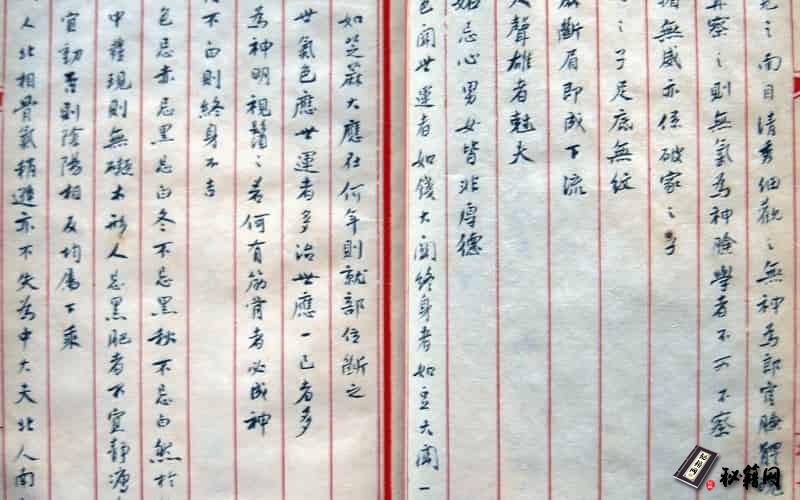 之南目清秀細觀之無神為郎官臉
再察之則無氣為神臉學者不可不察
無威亦係破家之子
之子足底無紋
斷眉即成下流
聲雄者尅夫
忌心男女皆非厚德
色開世運者如錢大開終身者如豆大開一
如芝蔴大應在何年則就部位斷之
世氣色應世運者多治世應一已者多
為神明視醫之若何有筋骨者必成神
不白則終身不吉
色忌赤忌黑忌白冬不忌黑秋不忌白然於
中雜現則無礙木形人忌黑肥者不宜靜瘦
宜動否則陰陽相反均屬下乘
人北相骨氣稍遜亦不失為中大夫北人南
秘籍网